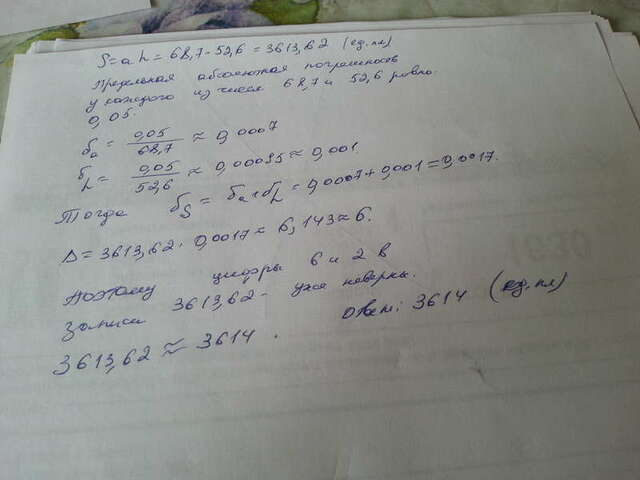 S = a h = 68,7 · 52,6 = 3613,62 (ед. пл)
Предельная абсолютная погрешность
у каждого из чисел 68,7 и 52,6 равна
0,05.
δa = 0,05/68,7 ≈ 0,0007
δh = 0,05/52,6 ≈ 0,00095 ≈ 0,001.
Тогда δS = δa + δh = 0,0007 + 0,001 = 0,0017.
Δ = 3613,62 · 0,0017 ≈ 6,143 ≈ 6.
Поэтому цифры 6 и 2 в
записи 3613,62 - уже неверны.
3613,62 ≈ 3614. Ответ: 3614 (ед. пл)